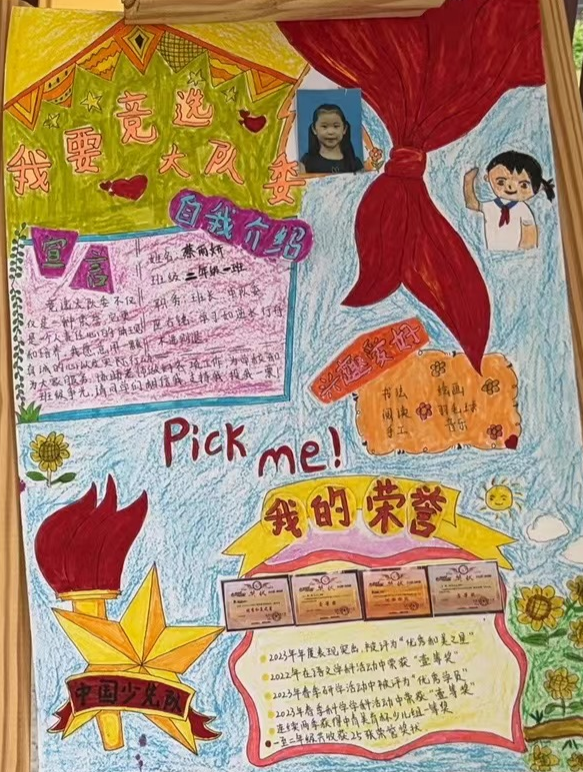 我要竞选
大队委
自我介绍
宣言
姓名：蔡雨妍
班级：二年级一班
职务：班长 中队委
座右铭：学习如逆水行舟
不进则退
竞选大队委不仅
仅是一种荣誉，更
和培养，我愿意用一颗
自我的
为大家服务
班级争光，请同学们相信我，支持我，投我一票！
兴趣爱好
书法 绘画
阅读 羽毛球
手工 音乐
Pick me!
我的荣誉
2023年年度表现突出，被评为“优秀和美之星”
2022年在语文学科活动中荣获“壹等奖”
2023年春季研学活动中被评为“优秀学员”
2023年春季研学学科活动中荣获“壹等奖”
连续两季获得中育英育杯少儿组一等奖
一至二年级共收获25张荣誉奖状
中国少先队